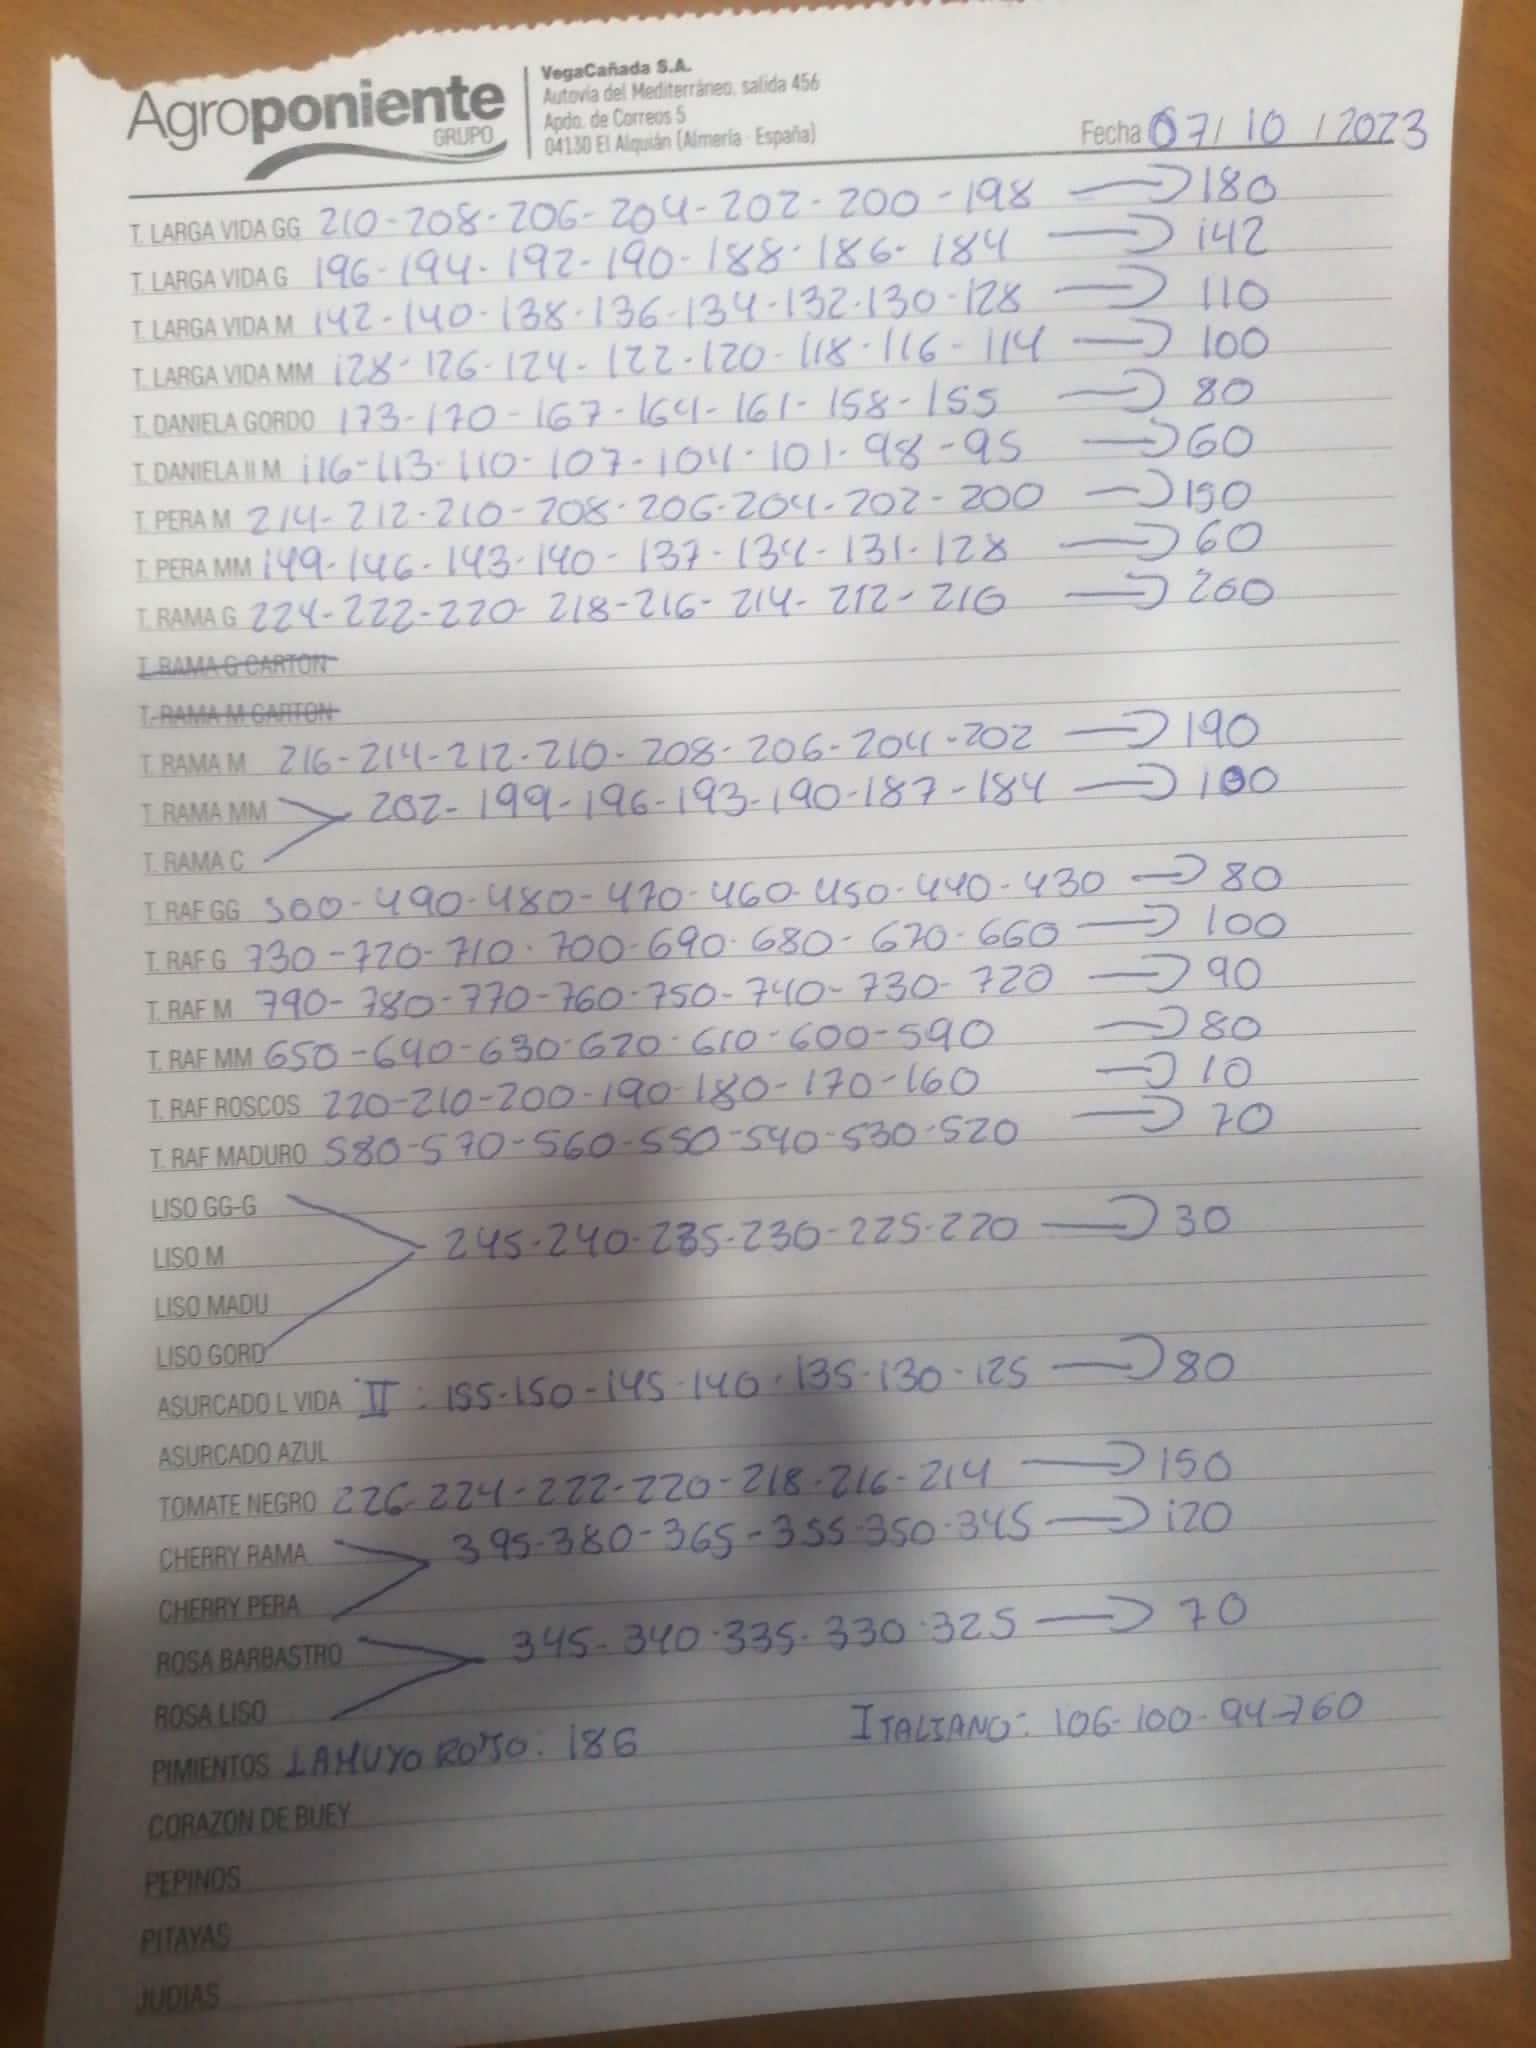 Agroponiente
GRUPO
VegaCañada S.A.
Autovía del Mediterráneo, salida 456
Apdo. de Correos 5
04130 El Alquián (Almería - España)
Fecha 07/10/2023
T. LARGA VIDA GG 210-208-206-204-202-200-198 → 180
T. LARGA VIDA G 196-194-192-190-188-186-184 → 142
T. LARGA VIDA M 142-140-138-136-134-132-130-128 → 110
T. LARGA VIDA MM 128-126-124-122-120-118-116-114 → 100
T. DANIELA GORDO 173-170-167-164-161-158-155 → 80
T. DANIELA II M 116-113-110-107-104-101-98-95 → 60
T. PERA M 214-212-210-208-206-204-202-200 → 190
T. PERA MM 149-146-143-140-137-134-131-128 → 60
T. RAMA G 224-222-220-218-216-214-212-210 → 200
T. RAMA G CARTON
T. RAMA M CARTON
T. RAMA M 216-214-212-210-208-206-204-202 → 190
T. RAMA MM 202-199-196-193-190-187-184 → 100
T. RAMA C
T. RAF GG 500-490-480-470-460-450-440-430 → 80
T. RAF G 730-720-710-700-690-680-670-660 → 100
T. RAF M 790-780-770-760-750-740-730-720 → 90
T. RAF MM 650-640-630-620-610-600-590 → 80
T. RAF ROSCOS 220-210-200-190-180-170-160 → 10
T. RAF MADURO 580-570-560-550-540-530-520 → 70
LISO GG-G
LISO M 245-240-235-230-225-220 → 30
LISO MADU
LISO GORD
ASURCADO L VIDA II: 155-150-145-140-135-130-125 → 80
ASURCADO AZUL
TOMATE NEGRO 226-224-222-220-218-216-214 → 150
CHERRY RAMA 395-380-365-355-350-345 → 120
CHERRY PERA
ROSA BARBASTRO 345-340-335-330-325 → 70
ROSA LISO
PIMIENTOS LAMUYO ROJO: 186 ITALIANO: 106-100-94→60
CORAZON DE BUEY
PEPINOS
PITAYAS
JUDIAS